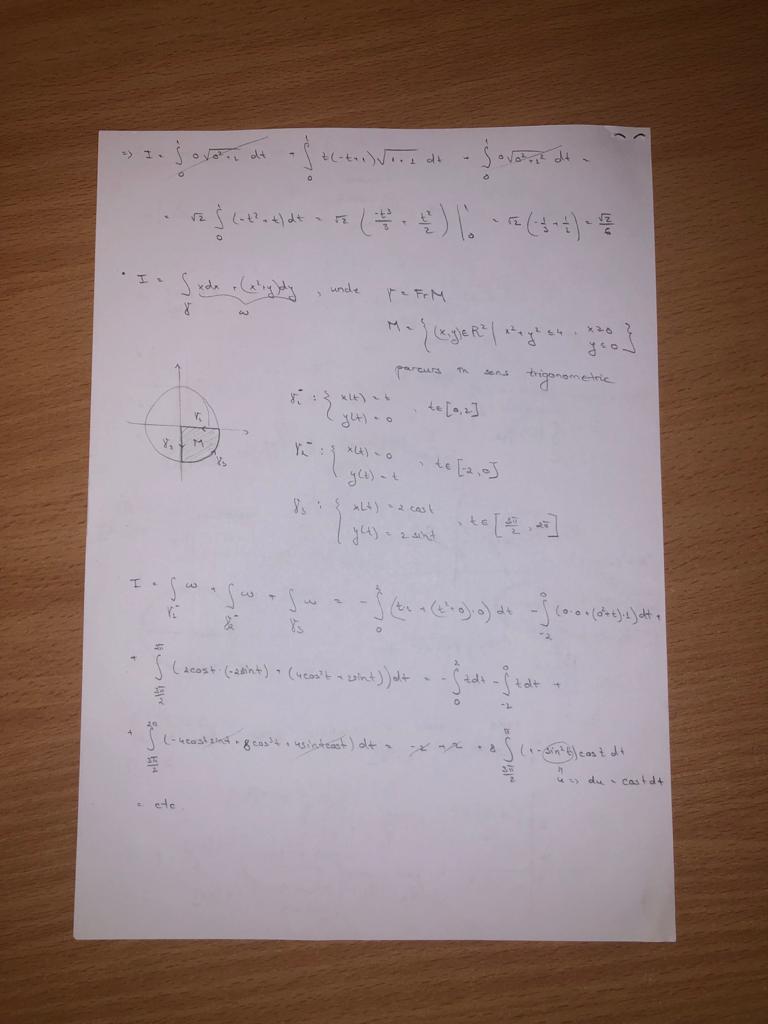 => I = ∫₀¹ 0√(0²+1) dt + ∫₀¹ t(-t+1)√(1+1) dt + ∫₀¹ 0√(0²+1²) dt =
= √2 ∫₀¹ (-t²+t) dt = √2 (-t³/3 + t²/2) |₀¹ = √2 (-1/3 + 1/2) = √2/6
• I = ∫_γ xdx + (x²+y)dy , unde γ = Fr M
ω
M = {(x,y)∈R² | x²+y² ≤ 4, x≥0
y≤0}
parcurs in sens trigonometric
γ₁⁻ : { x(t) = t
y(t) = 0 , t∈[0,2]
γ₁
γ₂ M
γ₃
γ₂⁻ : { x(t) = 0
y(t) = t , t∈[-2,0]
γ₃ : { x(t) = 2 cost
y(t) = 2 sint , t∈[3π/2, 2π]
I = ∫_γ₁⁻ ω + ∫_γ₂⁻ ω + ∫_γ₃ ω = - ∫₀² (t·1 + (t²+0)·0) dt - ∫₋₂⁰ (0·0+(0²+t)·1)dt +
+ ∫ (2cost·(-2sint) + (4cos²t + 2sint))dt = - ∫₀² tdt - ∫₋₂⁰ tdt +
+ ∫ (-4costsint + 8cos³t + 4sintcost) dt = -2 + 2 + 8 ∫ (1-sin²t)cost dt
u => du = costdt
= etc